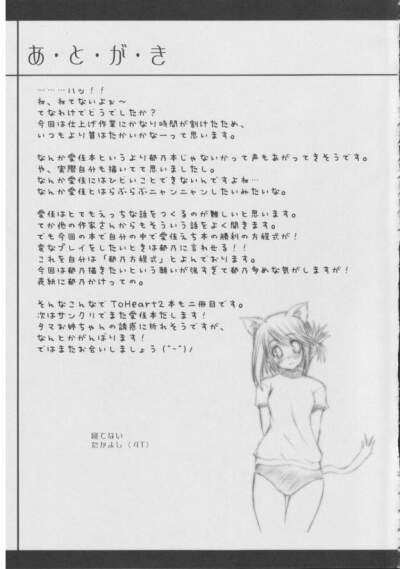 あ・と・が・き
………ハッ！！
ね、ねてないよぉ～
てなわけでどうでしたか？
今回は仕上げ作業にかなり時間が割けたため、
いつもより質はたかいかなーって思います。
なんか愛佳本というより郁乃本じゃないかって声もあがってきそうです。
や、実際自分も描いてて思いましたし。
なんか愛佳にはひどいことできないんですよね…
なんか愛佳とはらぶらぶニャンニャンしたいみたいな。
愛佳はとてもえっちな話をつくるのが難しいと思います。
てか他の作家さんからもそういう話をよく聞きます。
でも今回の本で自分の中で愛佳えち本の勝利の方程式が！
変なプレイをしたいときは郁乃に言わせる！！
これを自分は「郁乃方程式」とよんでおります。
今回は郁乃描きたいという願いが強すぎて郁乃多めな気がしますが！
表紙に郁乃かけっての。
そんなこんなでToHeart2本も二冊目です。
次はサンクリでまた愛佳本だします！
タマお姉ちゃんの誘惑に折れそうですが、
なんとかがんばります！
ではまたお会いしましょう(^-^)ノ
寝てない
たかよし（イT）